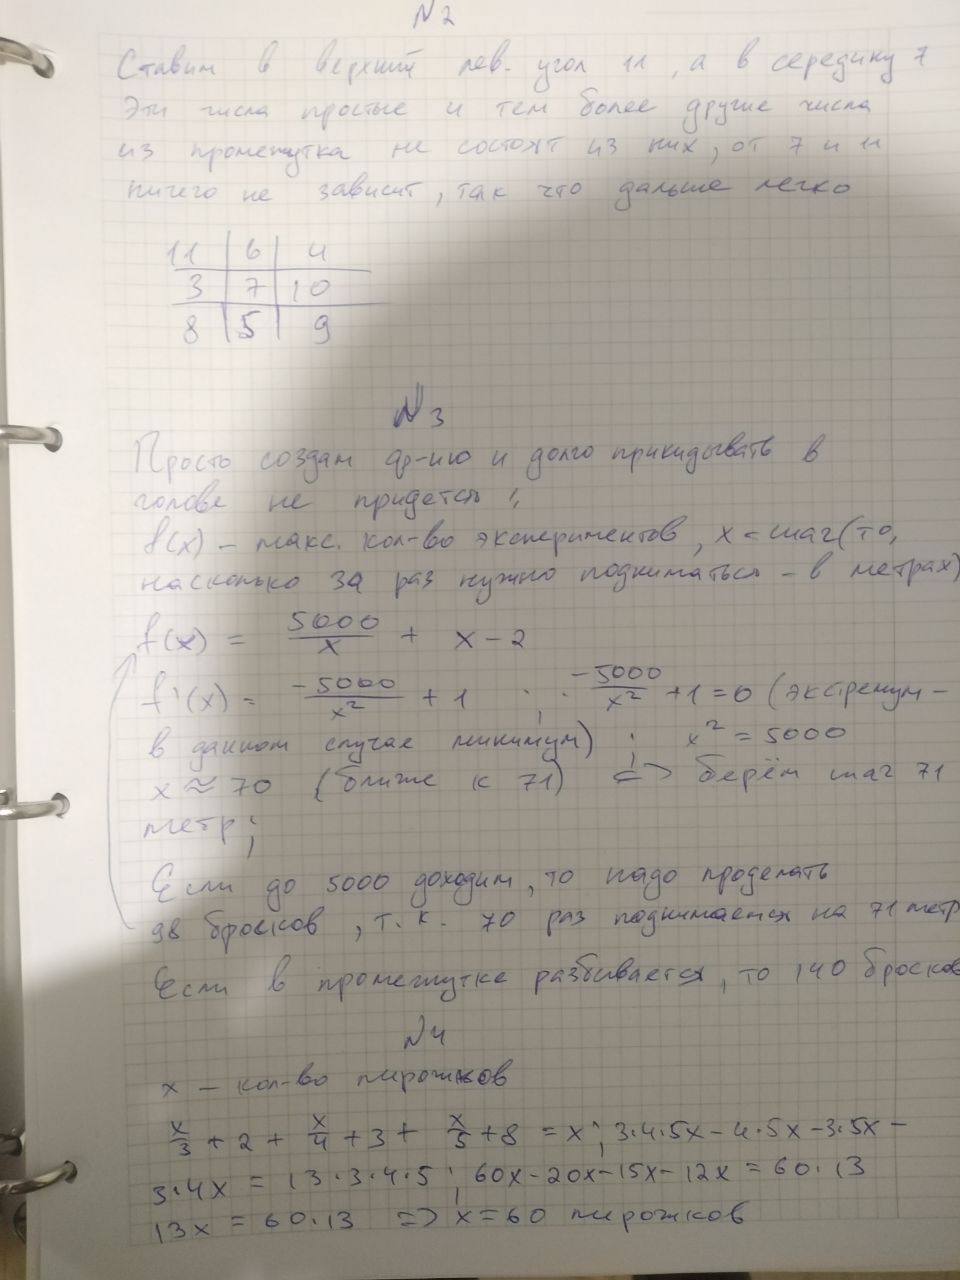 N2
Ставим в верхний лев. угол 11, а в середину 7
Эти числа простые и тем более другие числа
из промежутка не состоят из них, от 7 и 11
ничего не зависит, так что дальше легко
11 | 6 | 4
3 | 7 | 10
8 | 5 | 9
N3
Просто создам ф-ию и долго прикидывать в
голове не придется!
f(x) – макс. кол-во экспериментов, x – шаг (то,
насколько за раз нужно подниматься – в метрах)
f(x) = 5000/x + x - 2
f'(x) = -5000/x² + 1 ; -5000/x² + 1 = 0 (экстремум –
в данном случае минимум) ; x² = 5000
x ≈ 70 (ближе к 71) <=> берём шаг 71
метр;
Если до 5000 доходим, то надо проделать
98 бросков, т.к. 70 раз поднимаемся на 71 метр
Если в промежутке разбивается, то 140 бросков
N4
x – кол-во пирожков
x/3 + 2 + x/4 + 3 + x/5 + 8 = x ; 3·4·5x - 4·5x - 3·5x -
3·4x = 13·3·4·5 ; 60x - 20x - 15x - 12x = 60·13
13x = 60·13 => x = 60 пирожков